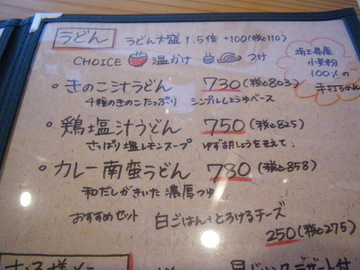 うどん うどん大盛 1.5倍 +100(税と110)
CHOICE 温かけ つけ
埼玉県産
小麦粉
100%の
手打うどん
・きのこ汁うどん 730(税と803)
千種のきのこたっぷり シンプルしょうゆベース
・鶏塩汁うどん 750(税と825)
さっぱり塩レモンスープ ゆず胡しょうを添えて
・カレー南蛮うどん 780(税と858)
和だしがきいた濃厚つゆ
おすすめセット 白ごはん+とろけるチーズ
250(税と275)